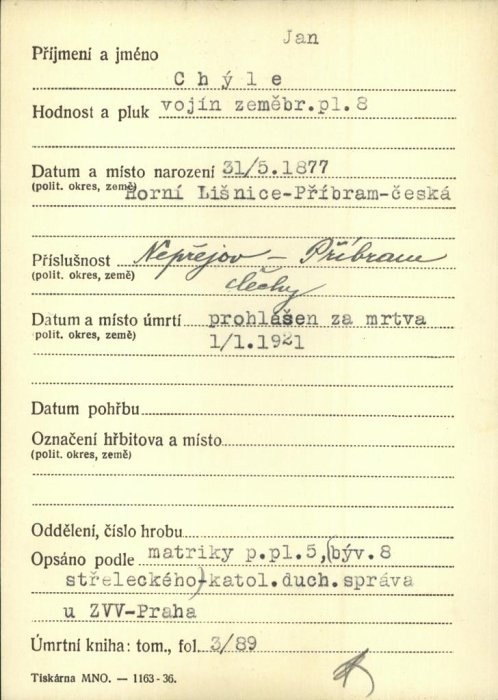 Jan
Příjmení a jméno
Chýle
Hodnost a pluk vojín zeměbr.pl.8
Datum a místo narození 31/5.1877
(polit. okres, země) Horní Lišnice-Příbram-česká
Příslušnost Nepřejov – Příbram
(polit. okres, země) Čechy
Datum a místo úmrtí prohlášen za mrtva
polit. okres, země) 1/1.1921
Datum pohřbu
Označení hřbitova a místo
(polit. okres, země)
Oddělení, číslo hrobu
Opsáno podle matriky p.pl.5,(býv.8
střeleckého)-katol.duch.správa
u ZVV-Praha
Úmrtní kniha: tom., fol. 3/89
Tiskárna MNO. — 1163-36.